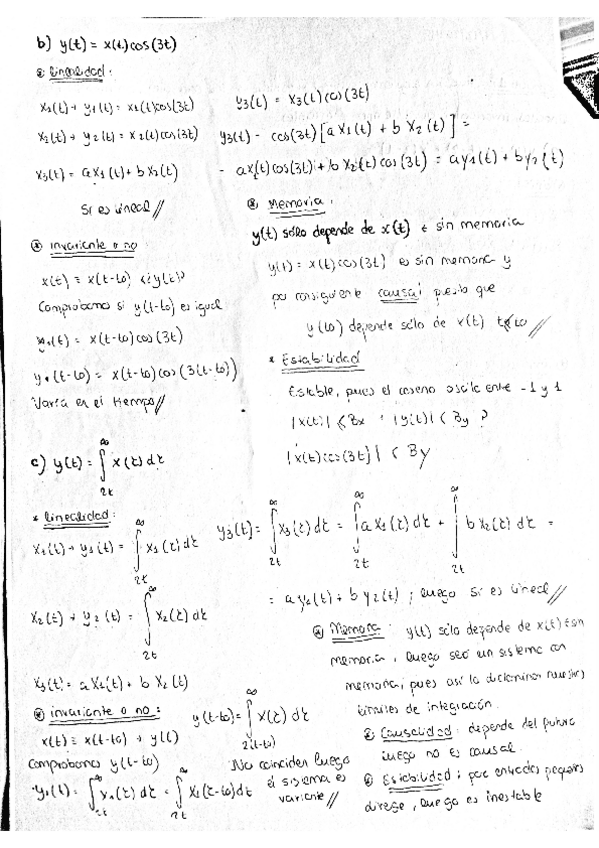 b) y(t) = x(t) cos(3t)
linealidad:
x₁(t) → y₁(t) = x₁(t)cos(3t)
x₂(t) → y₂(t) = x₂(t) cos(3t)
x₃(t) = a x₁(t) + b x₂(t)
Sí es lineal //
y₃(t) = x₃(t) cos(3t)
y₃(t) = cos(3t) [a x₁(t) + b x₂(t)] =
= a x₁(t) cos(3t) + b x₂(t) cos(3t) = a y₁(t) + b y₂(t)
invariante o no:
x₁(t) = x(t-t₀) ¿y(t)?
Comprobamos si y(t-t₀) es igual
y₁(t) = x(t-t₀) cos(3t)
y₁(t-t₀) = x(t-t₀) cos(3(t-t₀))
Varía en el tiempo //
Memoria:
y(t) sólo depende de x(t) sin memoria
y(t) = x(t) cos(3t) es sin memoria y
por consiguiente causal puesto que
y(t₀) depende sólo de x(t) t≤t₀ //
* Estabilidad
Estable, pues el coseno oscila entre -1 y 1
|x(t)| < Bx |y(t)| < By ?
|x(t) cos(3t)| < By
c) y(t) = ∫_{2t}^{∞} x(τ) dτ
* linealidad:
x₁(t) → y₁(t) = ∫_{2t}^{∞} x₁(τ) dτ
x₂(t) → y₂(t) = ∫_{2t}^{∞} x₂(τ) dτ
x₃(t) = a x₁(t) + b x₂(t)
y₃(t) = ∫_{2t}^{∞} x₃(τ) dτ = ∫_{2t}^{∞} a x₁(τ) dτ + ∫_{2t}^{∞} b x₂(τ) dτ =
= a y₁(t) + b y₂(t) ; luego sí es lineal //
invariante o no:
x(t) = x(t-t₀) → y(t)
Comprobamos y(t-t₀)
y₁(t) = ∫_{2t}^{∞} x₁(τ) dτ = ∫_{2t}^{∞} x₁(τ-t₀) dτ
y(t-t₀) = ∫_{2(t-t₀)}^{∞} x(τ) dτ
No coinciden luego
el sistema es
variante //
Memoria: y(t) sólo depende de x(t) con
memoria, luego será un sistema con
memoria, pues así lo dictaminan nuestros
límites de integración.
Causalidad: depende del futuro
luego no es causal.
Estabilidad: para entradas pequeñas
diverge, luego es inestable